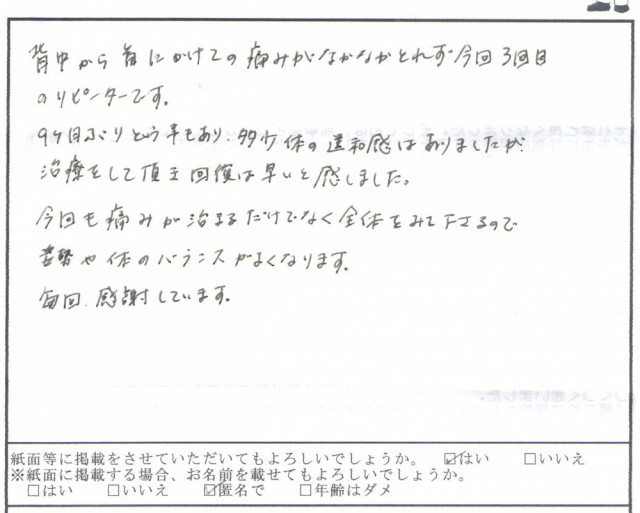 背中から首にかけての痛みがなかなかとれず今回3回目
のリピーターです。
9ヶ月ぶりという事もあり、多少体の違和感はありましたが、
治療をして頂き回復は早いと感じました。
今回も痛みが治まるだけでなく全体をみて下さるので
姿勢や体のバランスがよくなります。
毎回、感謝しています。
紙面等に掲載をさせていただいてもよろしいでしょうか。 ☑はい □いいえ
※紙面に掲載する場合、お名前を載せてもよろしいでしょうか。
□はい □いいえ ☑匿名で □年齢はダメ